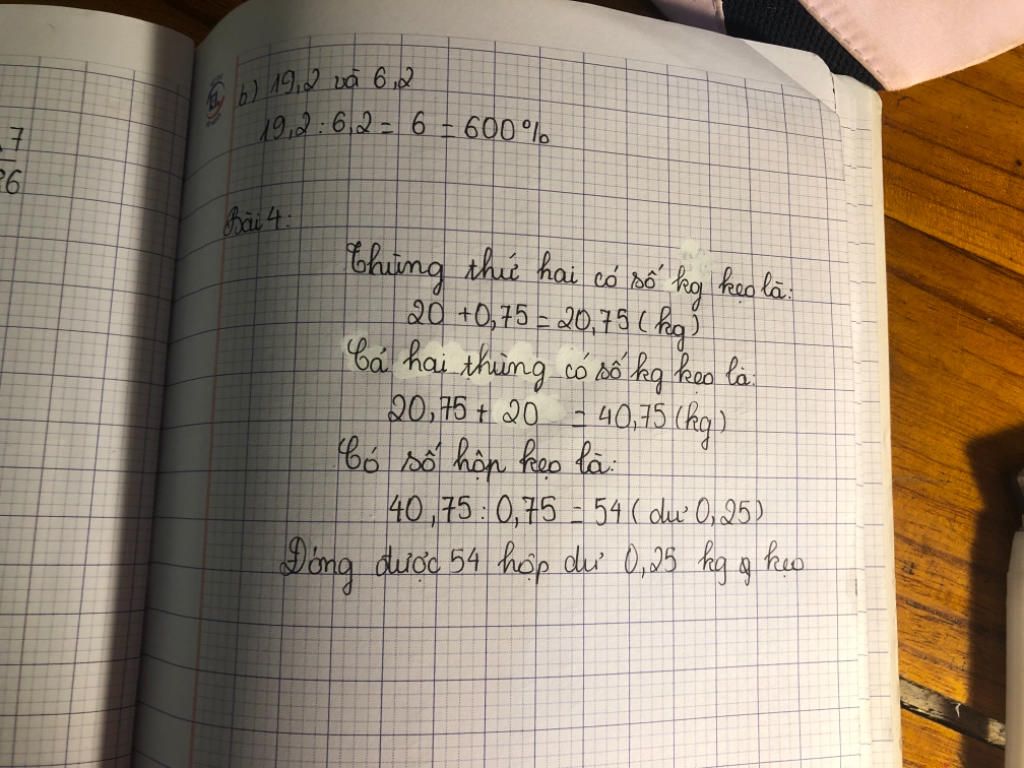 7
26
b) 19,2 và 6,2
19,2 : 6,2 = 6 = 600%
Bài 4:
Thùng thứ hai có số kg kẹo là:
20 + 0,75 = 20,75 (kg)
Cả hai thùng có số kg kẹo là:
20,75 + 20 = 40,75 (kg)
Có số hộp kẹo là:
40,75 : 0,75 = 54 (dư 0,25)
Đóng được 54 hộp dư 0,25 kg kẹo